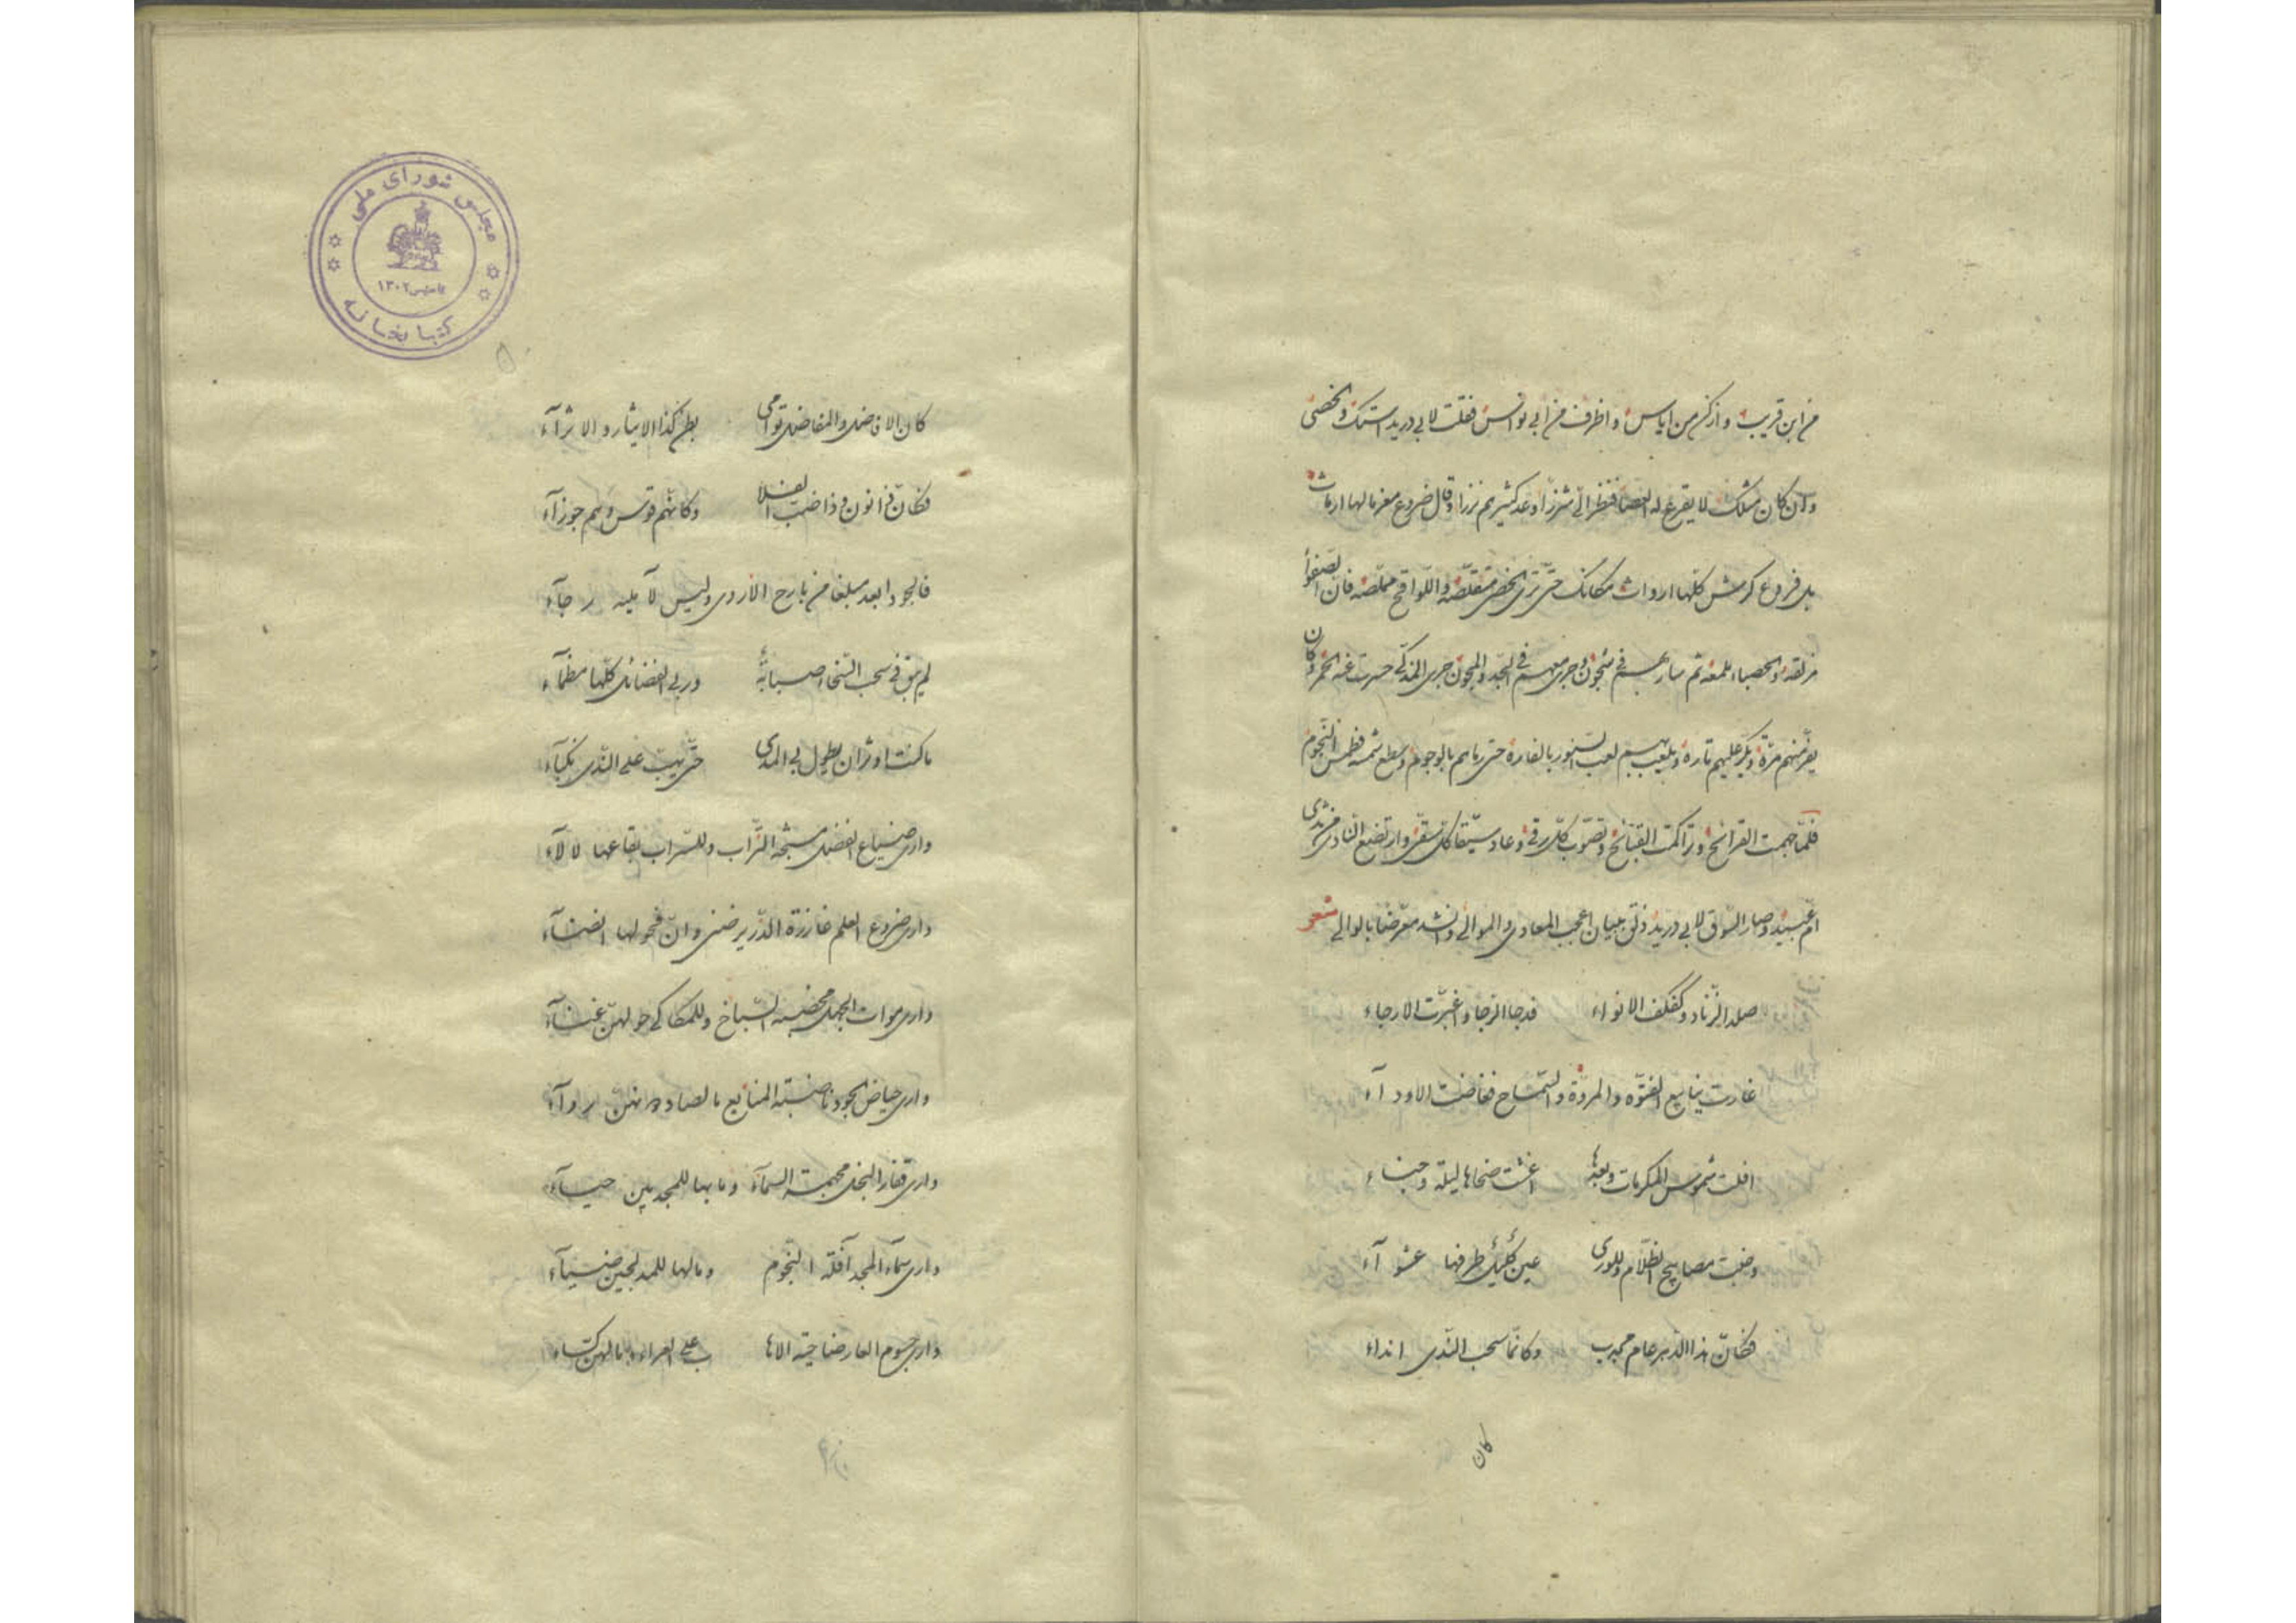 من ابن قريب وازكن من اياس واظرف من ابي نواس فقلت لابي دريد استمك والخصى
وان كان مثلك لا يقرع له العصا فنظر الىّ شزرًا وعد كثيرهم نزرا وقال ضروع معز مالها ارماث
بل فروع كرمش كلها ارواث مكانك حتى ترى الخصى متقلصة واللواقح مملصة فان الصفوا
مزلقة والحصباء ملمعة ثم سار بهم في شجون وجرى معهم في الجد والمجون جرى المذكّى حسرت عنه الحمر وكان
يفرّ منهم مرّة ويكرّ عليهم تارة ويلعب بهم لعب السنور بالفارة حتى باهم بالوجوم وسطع شمسه فطمس النجوم
فلمّا جمت القرائح وتراكمت القبائح وتصوّب كلّ رقى وعاد سيّقا كلّ شقى وارتضع النادى من ثدى
امّ عبيد وصار السّوق لابي دريد ذلق ببيان اعجب المعادى والموالى وانشد معرّضا بالوالى شعر
صلد الزّناد وكفكف الانواء قد جا الرّجا واغبرّت الارجاء
غارت ينابيع الفتوّه والمروّة والسّماح فغاضت الاودآء
افلت شموس المكرمات وبعدها اغشت ضحاها ليلة وجناء
وخبت مصابيح الظلام وللورى عين كليل طرفها عشوآء
فكانّ هذا الدّهر عام مجدب وكانّما سحب النّدى انداء
كان
كان الافاضل والمفاضل توأمى بطن كذا الايثار والاثرآء
فكانّ ذا نون وذا ضبّ الفلا وكانّهم قوس وهم جوزآء
فالجود ابعد مبلغا من بارح الاروى وليس لآمليه رجآء
لم يبق في سحب السّخاء صبابة وربى الفضائل كلّها مظمآء
ما كنت اوثر ان يطول بى المدى حتّى تهبّ على النّدى نكبآء
وارى ضياع الفضل مشبّحة التّراب وللسّراب بقاعها لالآء
وارى ضروع العلم غازرة الدّرّ يرضى وانّ فحولها انضآء
وارى موات الجهل مخصبة السّباخ وللمكاكى حولهنّ غنآء
وارى حياض الجود ناضبة المنابع ما لصاد منهنّ روآء
وارى قفار البخل محمية السمآء وما بها للمجدبين حيآء
وارى سمآء المجد آفلة النّجوم وما لها للمدلجين ضيآء
وارى جسوم العار ضاحية الاها ب على العراء وما لهنّ كسآء
مجلس شورای ملی
کتابخانه
تاسیس ۱۳۰۲